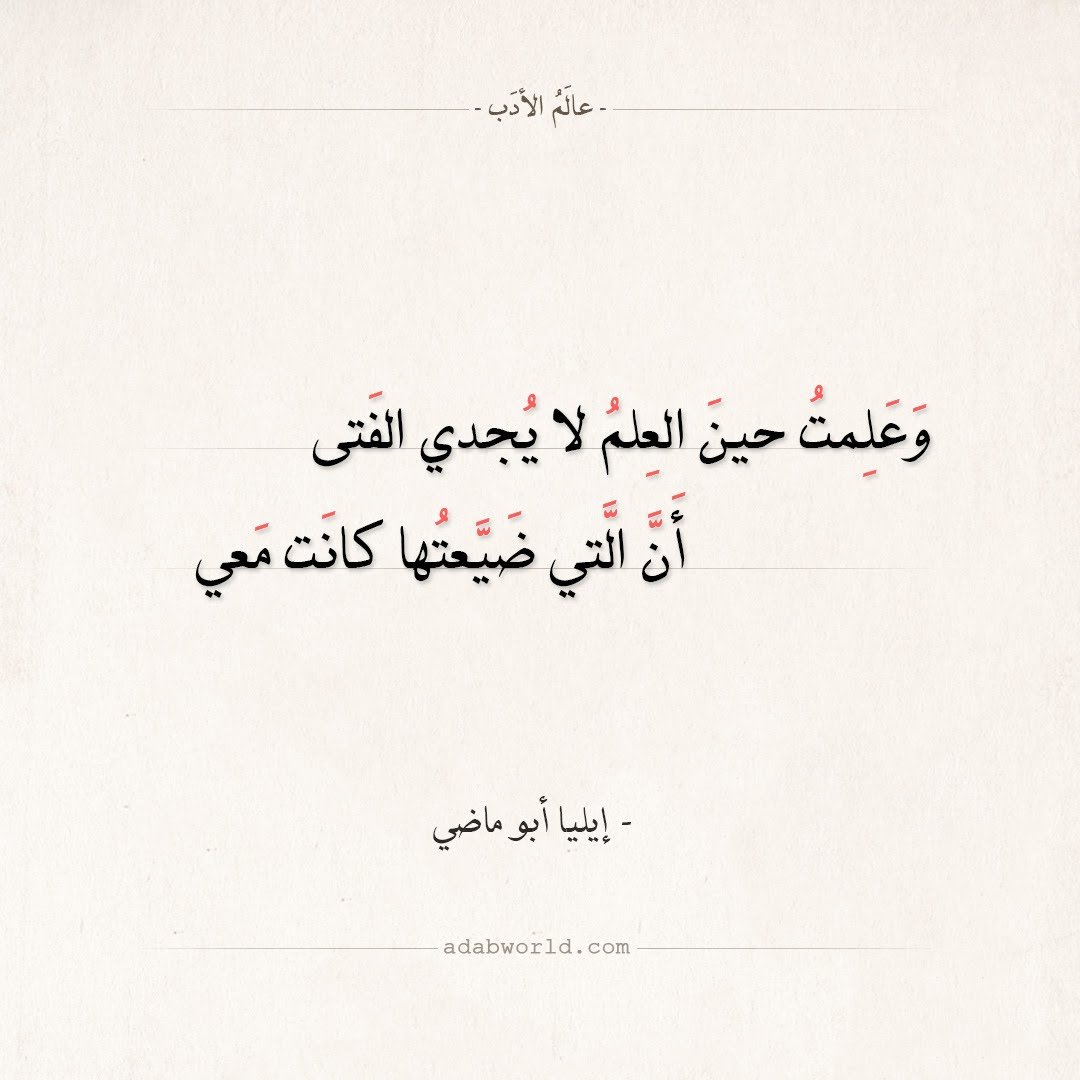 - عالَمُ الأدَب -
وَعَلِمتُ حينَ العِلمُ لا يُجدي الفَتى
أَنَّ الَّتي ضَيَّعتُها كانَت مَعي
- إيليا أبو ماضي
adabworld.com